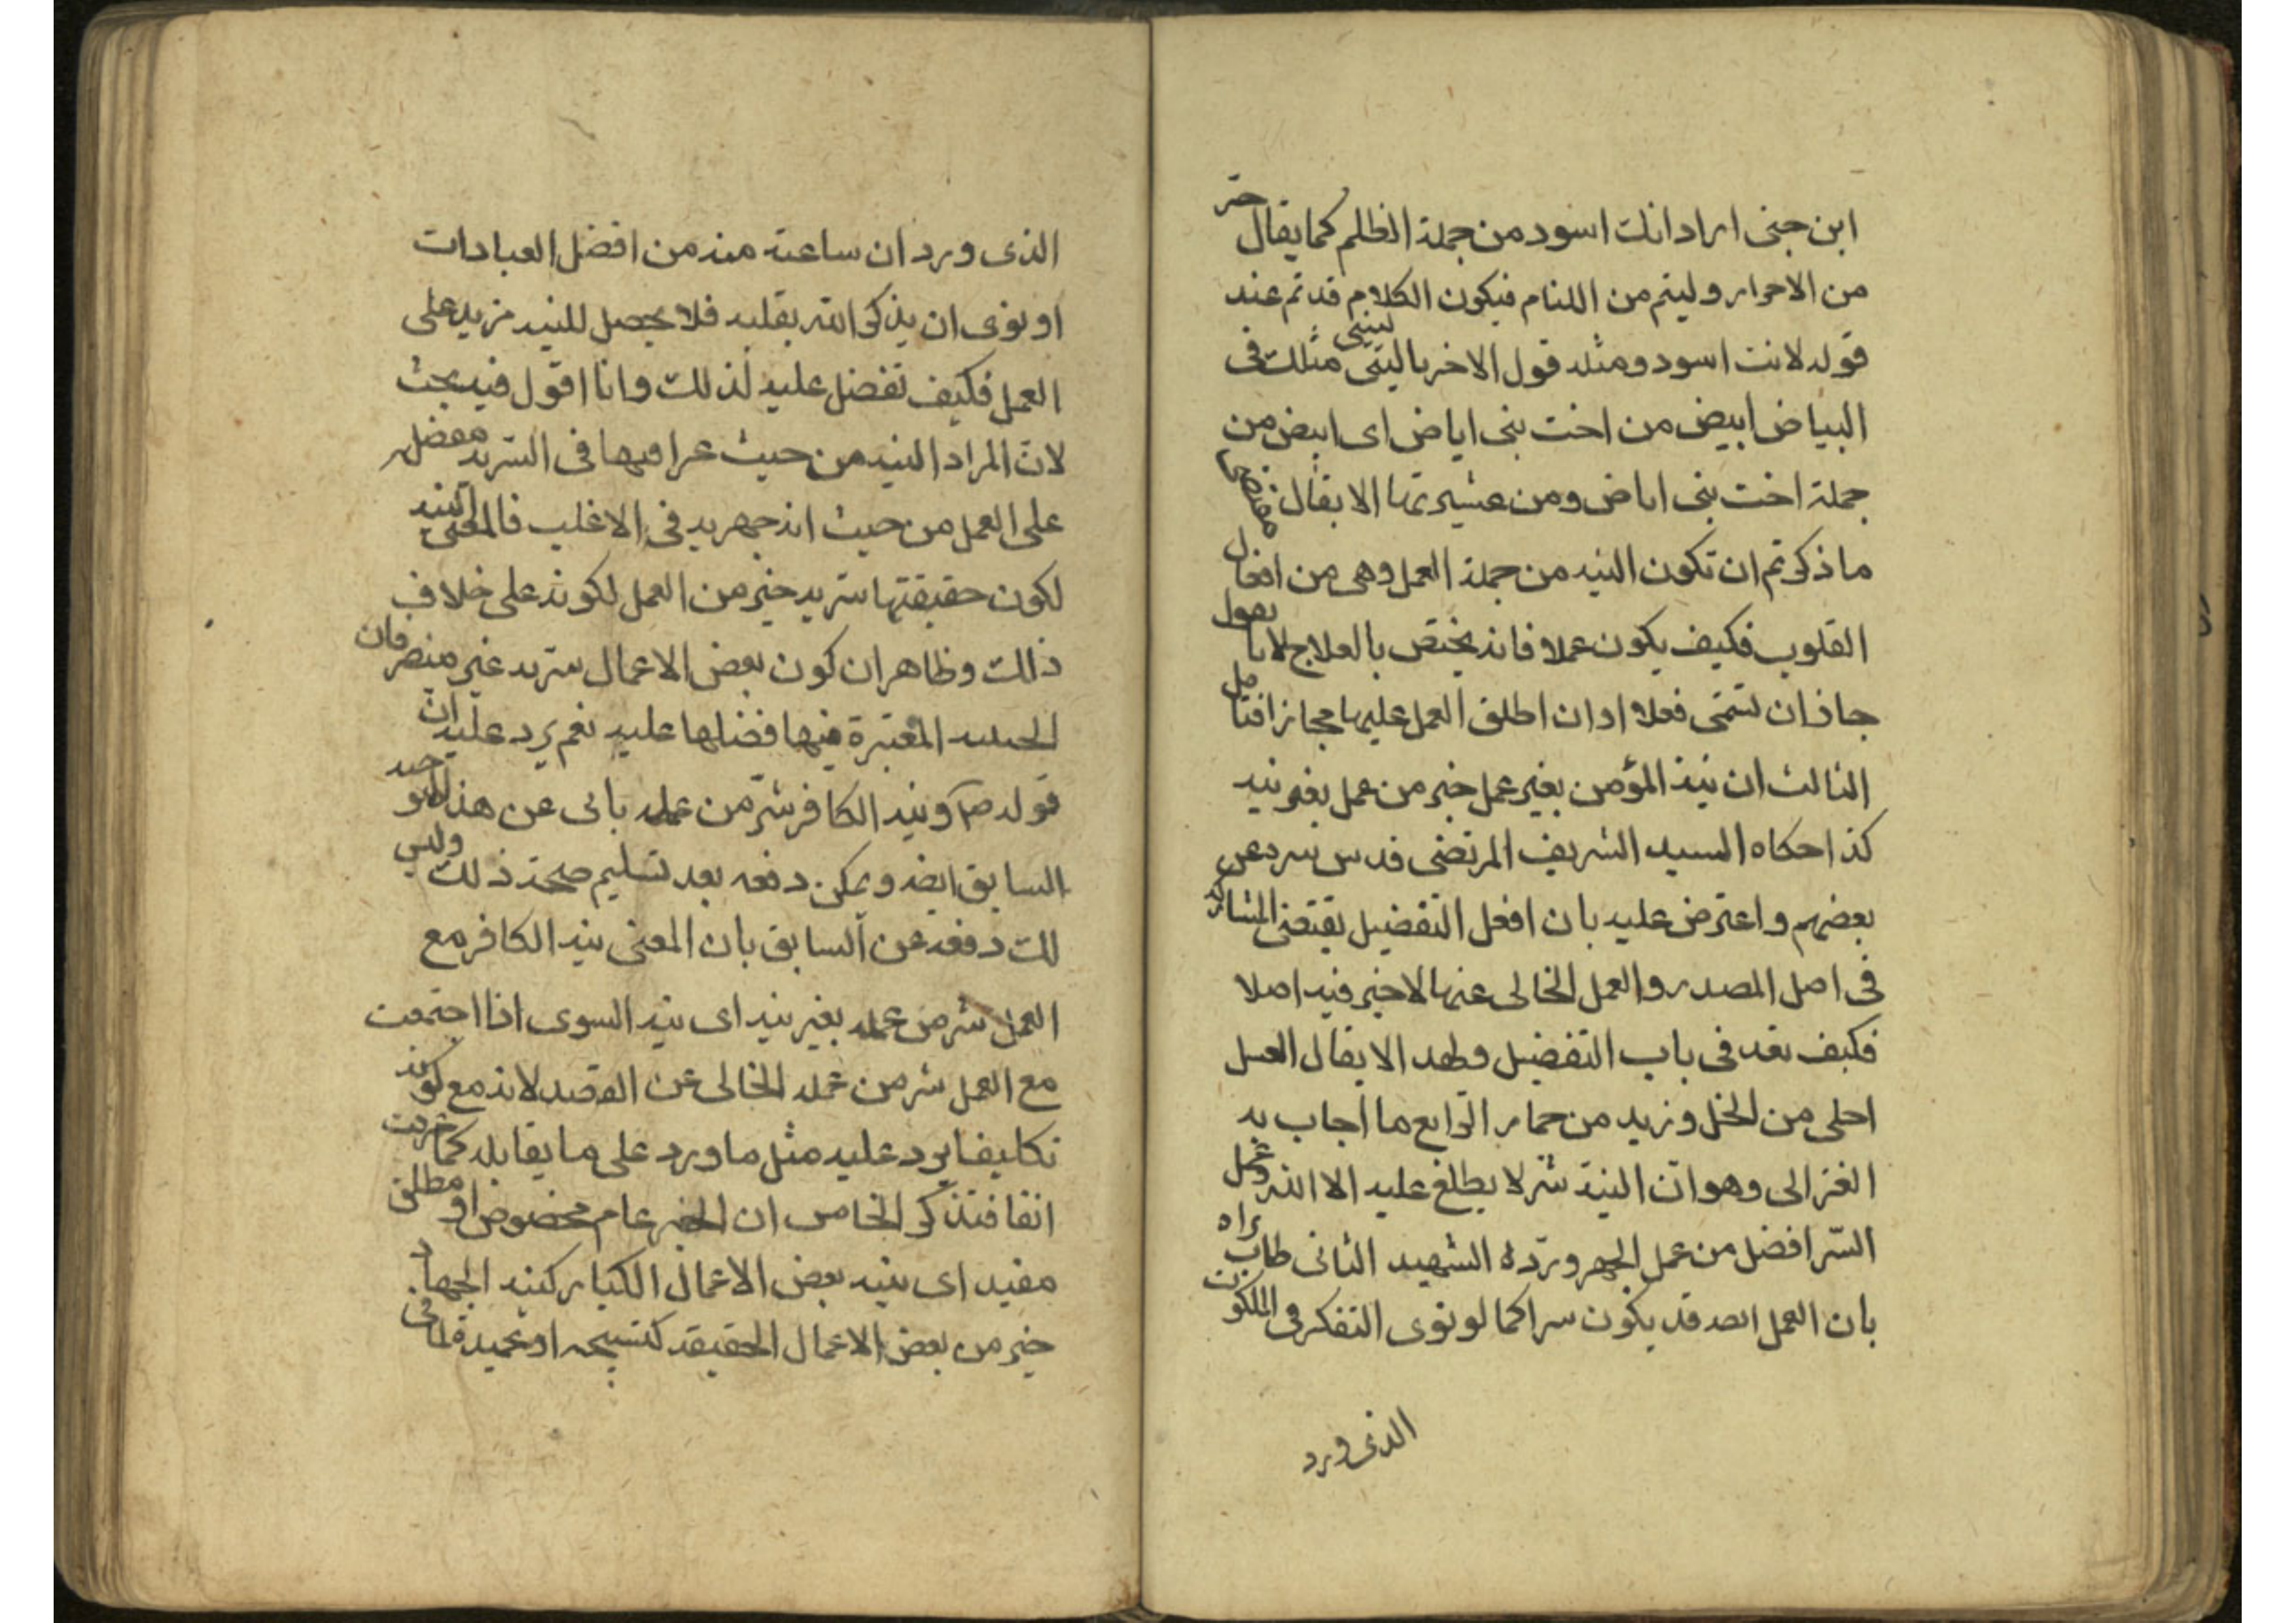 ابن جنی اراد انك اسود من جملة الظلم كما يقال حر
من الاحرار و ليئم من اللئام فيكون الكلام قد تم عند
قوله لانت اسود ومثله قول الاخر يا ليتنی مثلك فی
البياض ابيض من اخت بنی اباض ای ابيض من
جملة اخت بنی اباض ومن عشيرتها الا يقال
ما ذكرتم ان تكون النية من جملة العمل وهی من افعال
القلوب فكيف يكون عملا فانه يختص بالعلاج لانا نقول
جاز ان تسمی فعلا او ان اطلق العمل عليها مجازا فتامل
الثالث ان نية المؤمن بغير عمل خير من عمل بغير نيه
كذا حكاه السيد الشريف المرتضی قدس سره عن
بعضهم و اعترض عليه بان افعل التفضيل يقتضی المشاركة
فی اصل المصدر و العمل الخالی عنها لا خير فيه اصلا
فكيف بعد فی باب التفضيل ولهذ الا يقال العسل
احلی من الخل و زيد من حمار الرابع ما اجاب به
الغزالی وهو ان النية سر لا يطلع عليه الا الله وعمل
السر افضل من عمل الجهر ورده الشهيد الثانی طاب ثراه
بان العمل ايضه قد يكون سرا كما لو نوی التفكر فی الملكوت
الذی ورد
الذی ورد ان ساعة منه من افضل العبادات
او نوی ان يذكر الله بقلبه فلا يحصل للنية مزيد علی
العمل فكيف تفضل عليه لذلك وانا اقول فيه بحث
لان المراد النية من حيث عرافتها فی السرية مفضل
علی العمل من حيث انه جهريه فی الاغلب فالمعنی النيه
لكون حقيقتها سريه خير من العمل لكونه علی خلاف
ذلك وظاهر ان كون بعض الاعمال سريه غير منصرفان
المعتبرة فيها فضلها عليه نعم يرد عليه ان
قوله ص و نية الكافر شر من عمله يابی عن هذا التوجيه
السابق ايضه و يمكن دفعه بعد تسليم صحة ذلك وليس
لك دفعه عن السابق بان المعنی نية الكافر مع
العمل شر من عمله بغير نيه ای نية السوی اذا اجتمعت
مع العمل شر من عمله الخالی عن القصد لانه مع كونه
تكليفا يرد عليه مثل ما ورد علی ما يقابله كما عرفت
انفا فتذكر الخامس ان الخبر عام مخصوص او مطلق
مقيد ای نية بعض الاعمال الكبار كنية الجهاد
خير من بعض الاعمال الحقيقه كتسبيحه او تحميدة لما فی